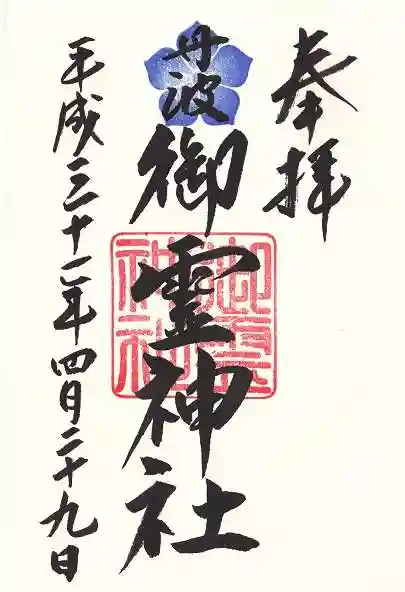 奉拝
丹波
御霊神社
平成三十一年四月二十九日
御霊
神社